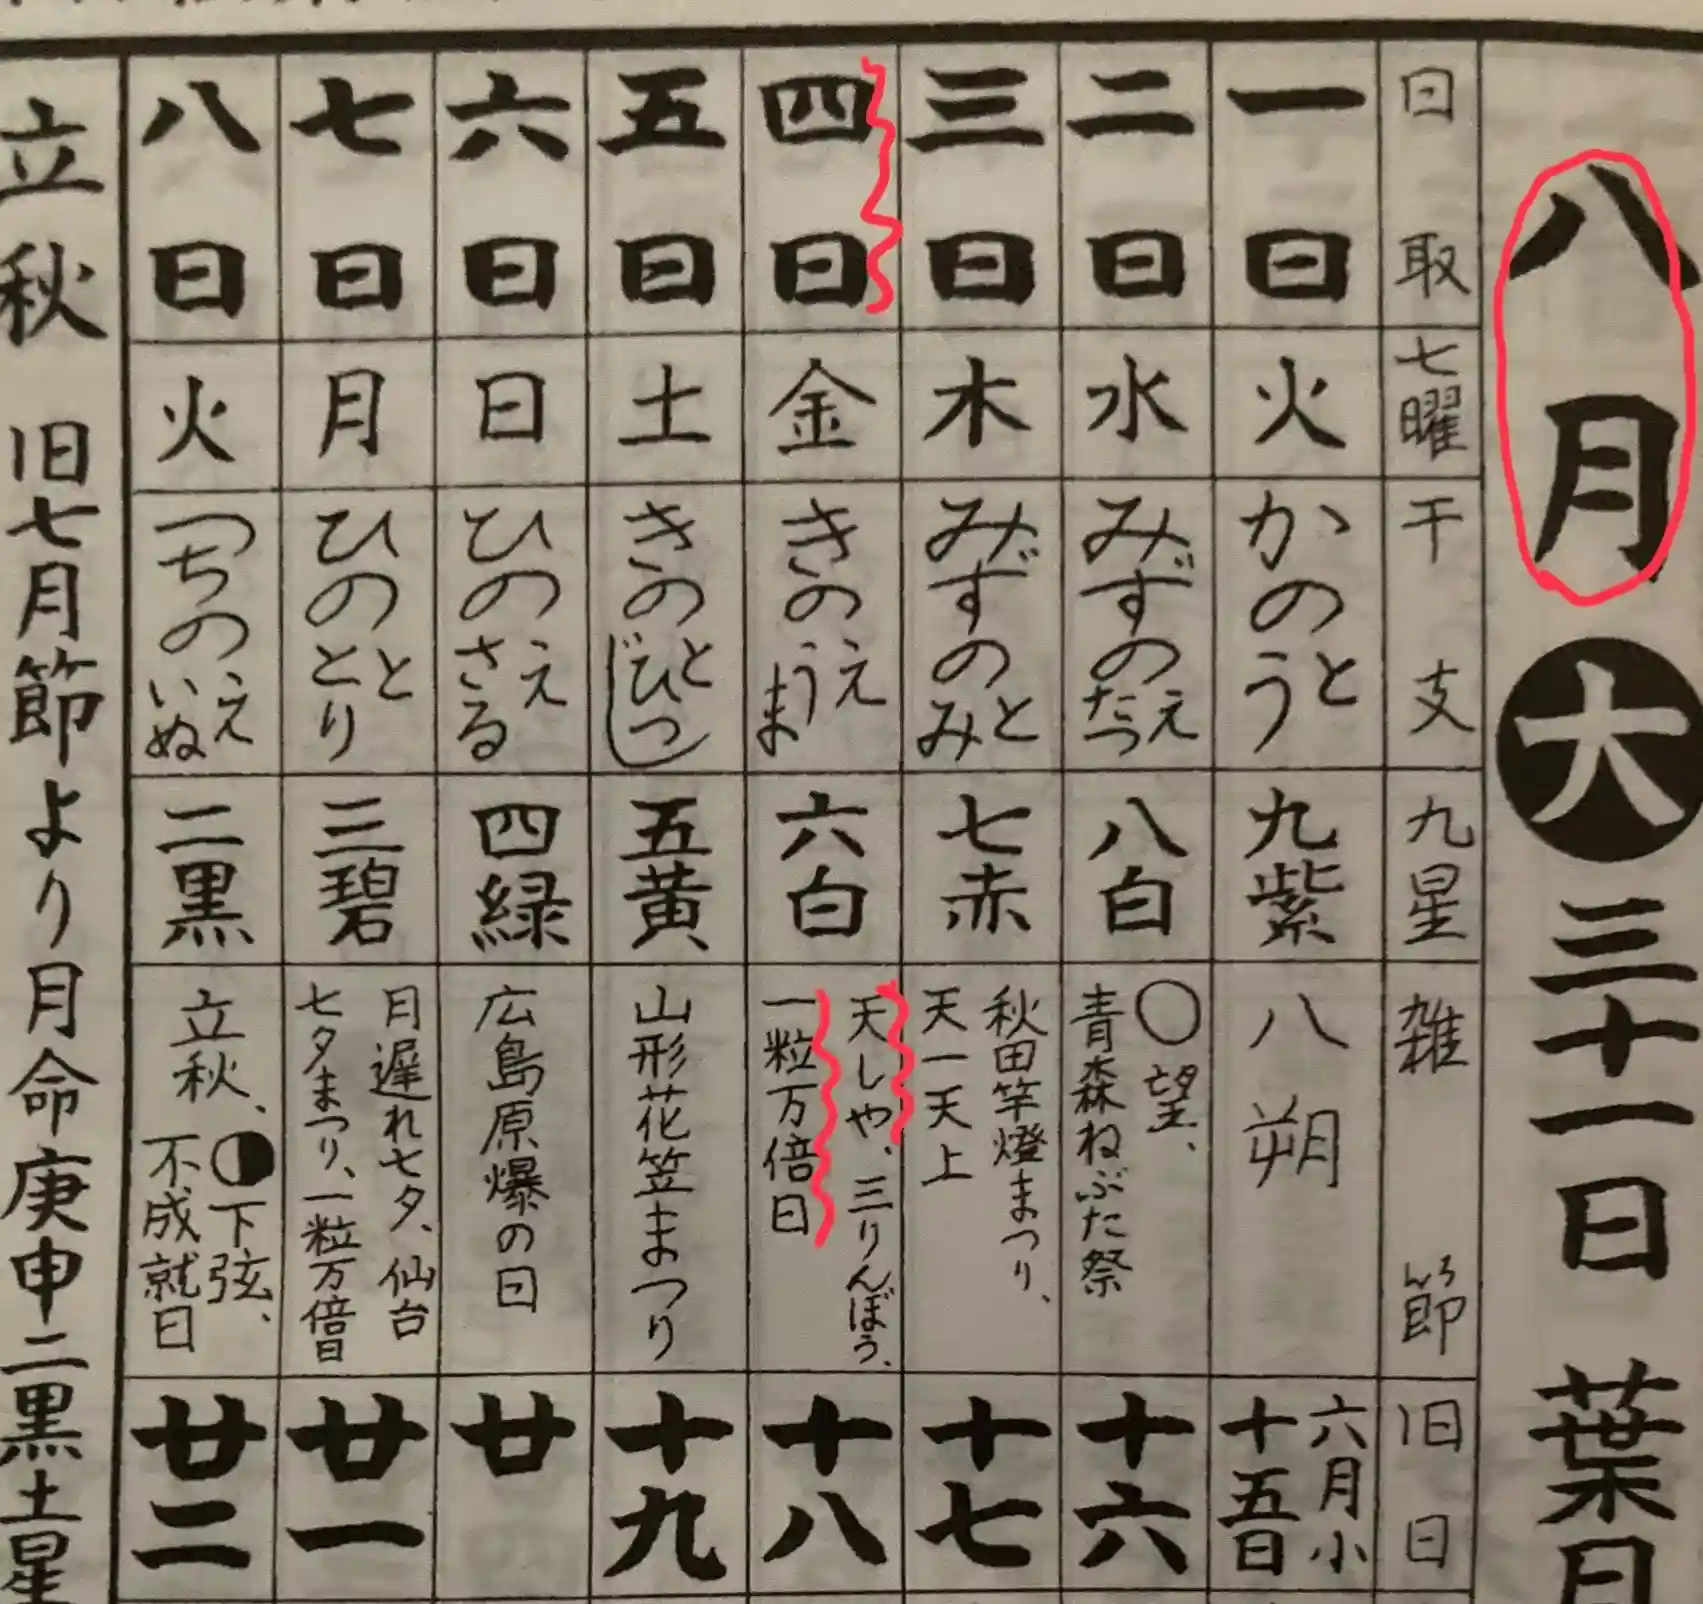 八月大三十一日 葉月
日取
七曜
干支
九星
雑節
旧日
一日
火
かのとう
九紫
八朔
六月小
十五日
二日
水
みずのえ
たつ
八白
○望、
青森ねぶた祭
十六
三日
木
みずのと
み
七赤
秋田竿燈まつり、
天一天上
十七
四日
金
きのえ
うま
六白
天しや、三りんぼう、
一粒万倍日
十八
五日
土
きのと
ひつじ
五黄
山形花笠まつり
十九
六日
日
ひのえ
さる
四緑
広島原爆の日
廿
七日
月
ひのと
とり
三碧
月遅れ七夕、仙台
七夕まつり、一粒万倍日
廿一
八日
火
つちのえ
いぬ
二黒
立秋、◑下弦、
不成就日
廿二
立秋 旧七月節より月命庚申二黒土星